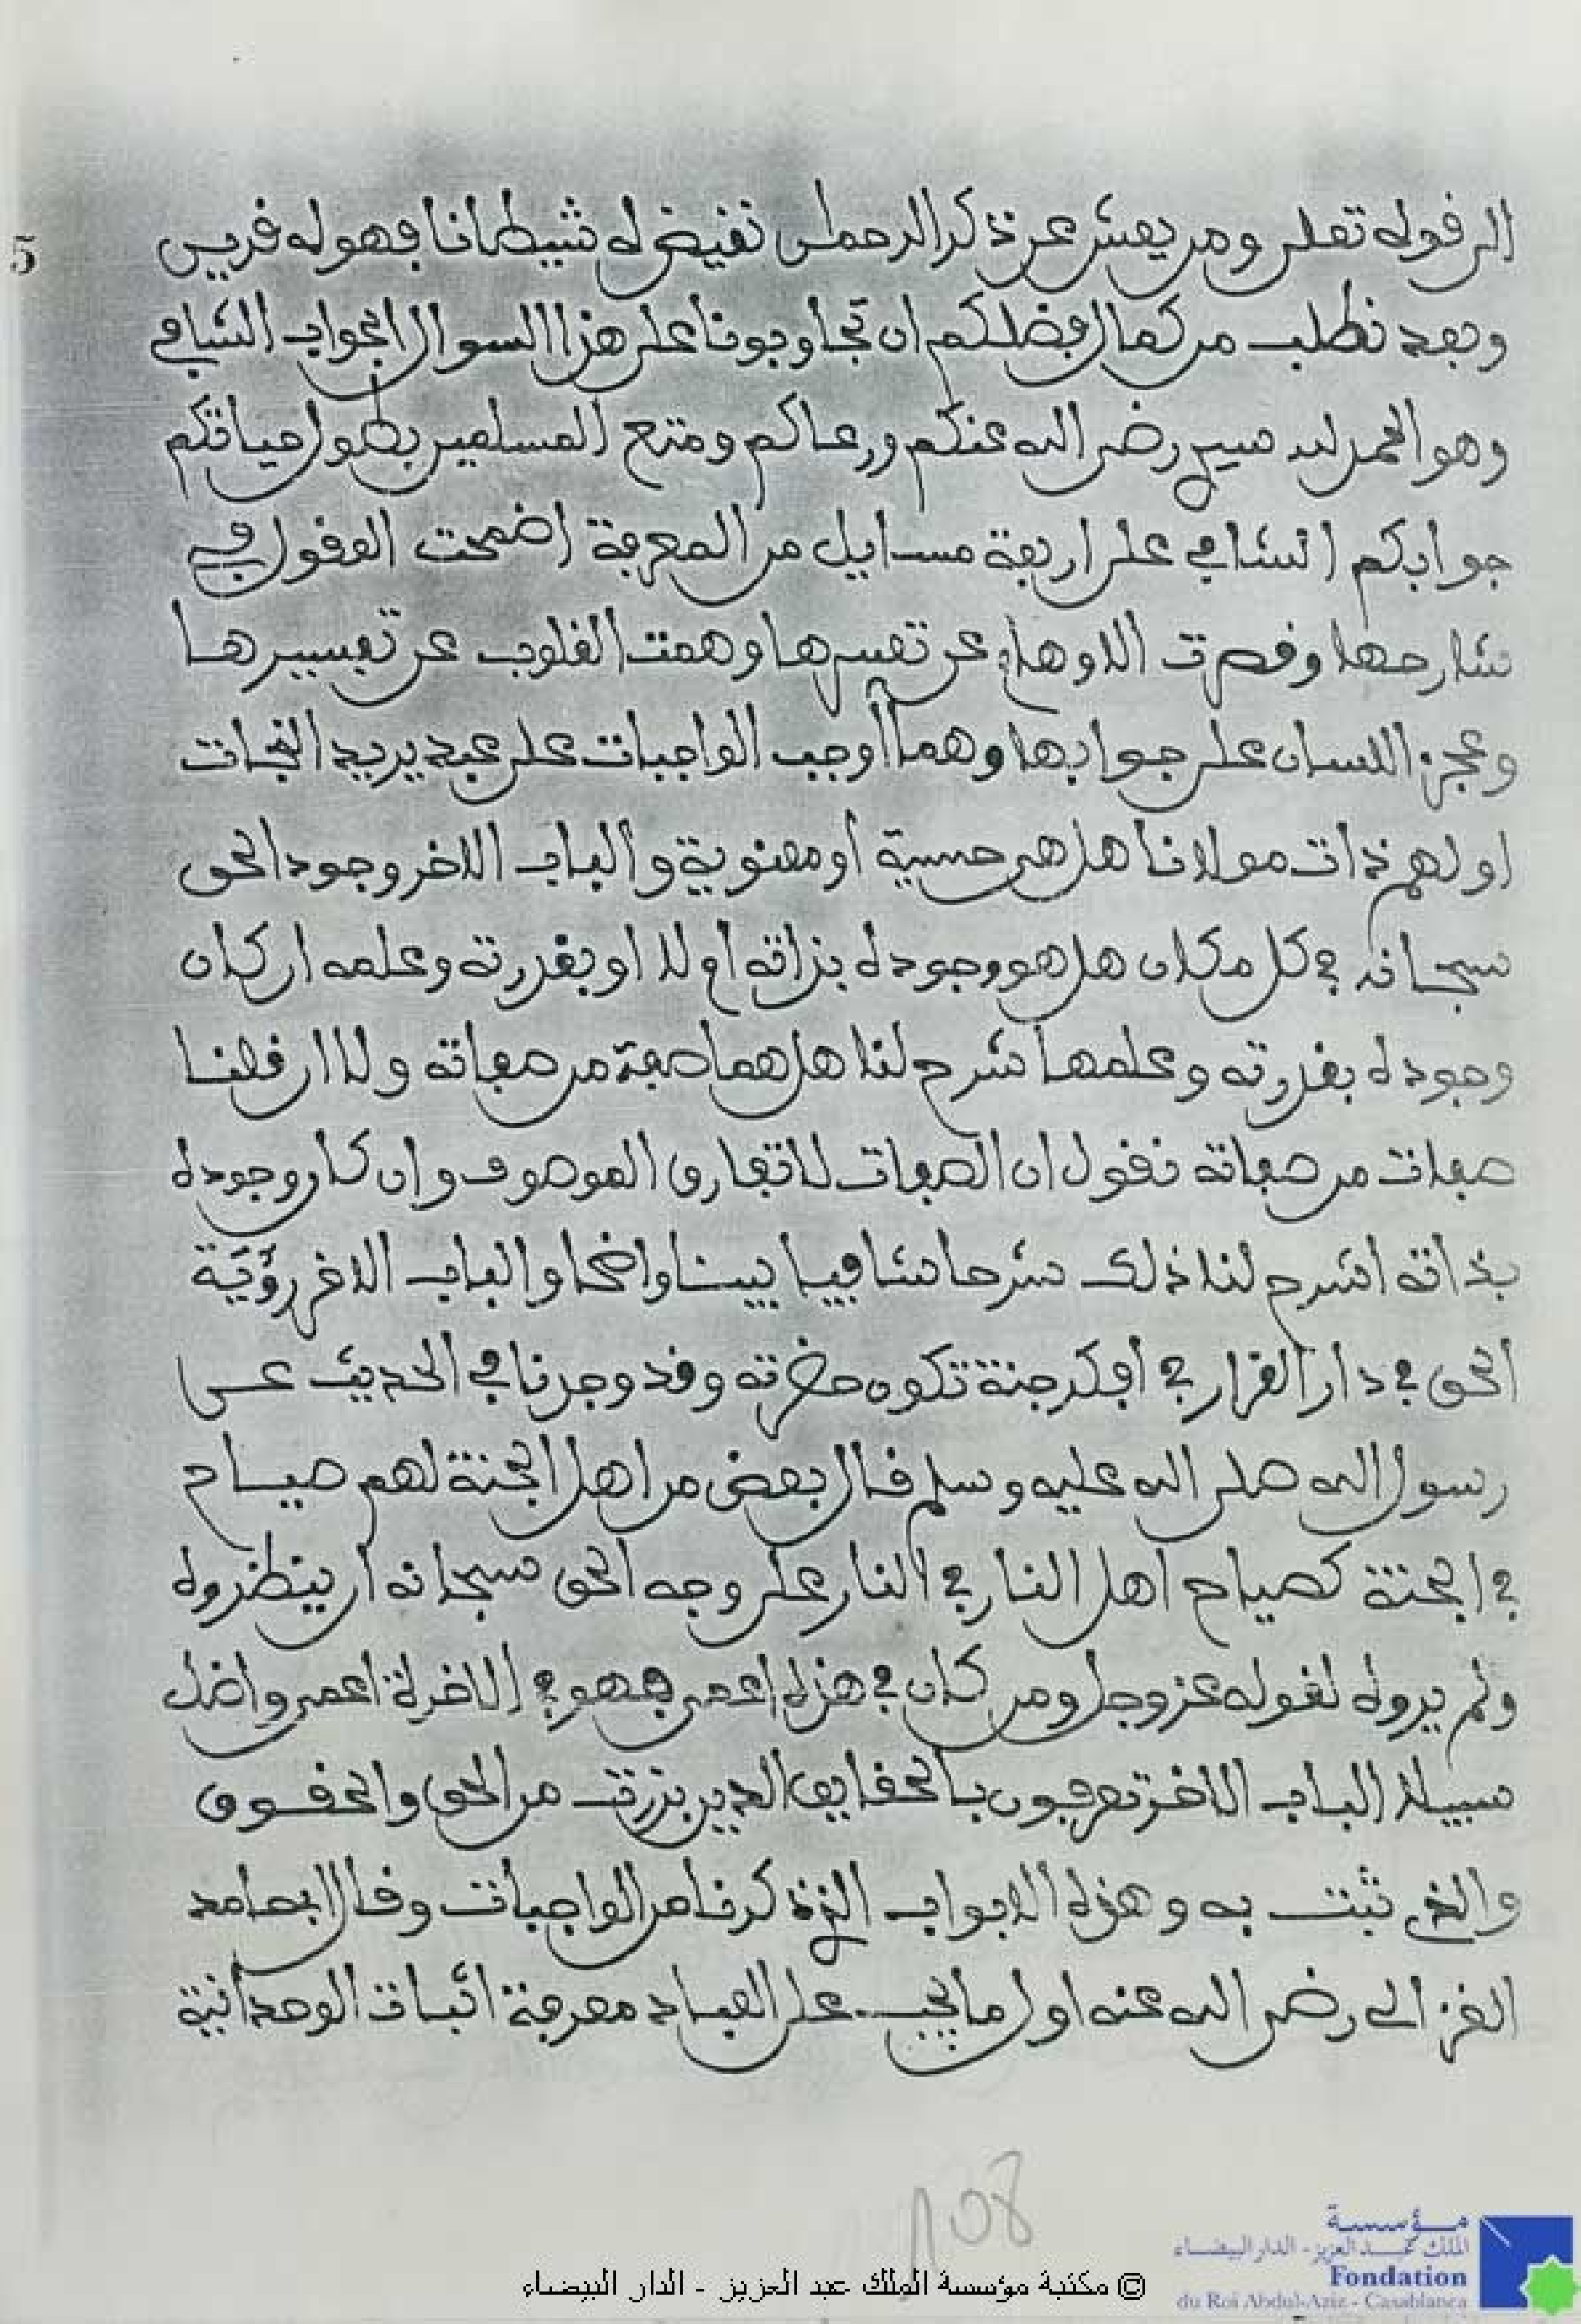 الى قوله تعلى ومن يعش عن ذكر الرحمان نقيض له شيطانا فهو له قرين
5
وبعد نطلب من كمال فضلكم ان تجاوبونا على هذا السوال الجواب الشافي
وهو الحمد لله سيدي رضى الله عنكم ورعاكم ومتع المسلمين بطول حياتكم
جوابكم الشافي على اربعة مسايل من المعرفة اضمحت العقول في
شارحها وقصرت الاوهام عن تفسرها وهمت القلوب عن تفسيرها
وعجز اللسان على جوابها وهما أوجب الواجبات على عبد يريد النجات
اولهم ذات مولانا هل هى حسية أو معنوية والباب الاخر وجود الحق
سبحانه في كل مكان هل هو وجوده بذاته ام لا او بقدرته وعلمه ان كان
وجوده بقدرته وعلمها شرح لنا هل هما صفة من صفاته ولا ان قلنا
صفات من صفاته نقول ان الصفات لا تفارق الموصوف وان كان وجوده
بذاته اشرح لنا ذلك شرحا شافيا بينا واضحا والباب الاخر رؤية
الحق في دار القرار في أي جنة تكون حضرته وقد وجدنا في الحديث عن
رسول الله صلى الله عليه وسلم قال بعض من اهل الجنة لهم صياح
في الجنة كصياح اهل النار في النار على وجه الحق سبحانه ان ينظروه
ولم يروه لقوله عز وجل ومن كان في هذه اعمى فهو في الاخرة اعمى واضل
سبيلا الباب الاخر تعرفون بالحقايق الذين من الحق والحقوق
والذي ثبت به وهذه الابواب الذي ذكرنا من الواجبات وقال ابحامد
الغزالى رضى الله عنه اول ما يجب على العباد معرفة اثبات الوحدانية
108
مؤسسة
الملك عبد العزيز - الدار البيضاء
Fondation
du Roi Abdul-Aziz - Casablanca
© مكتبة مؤسسة الملك عبد العزيز - الدار البيضاء